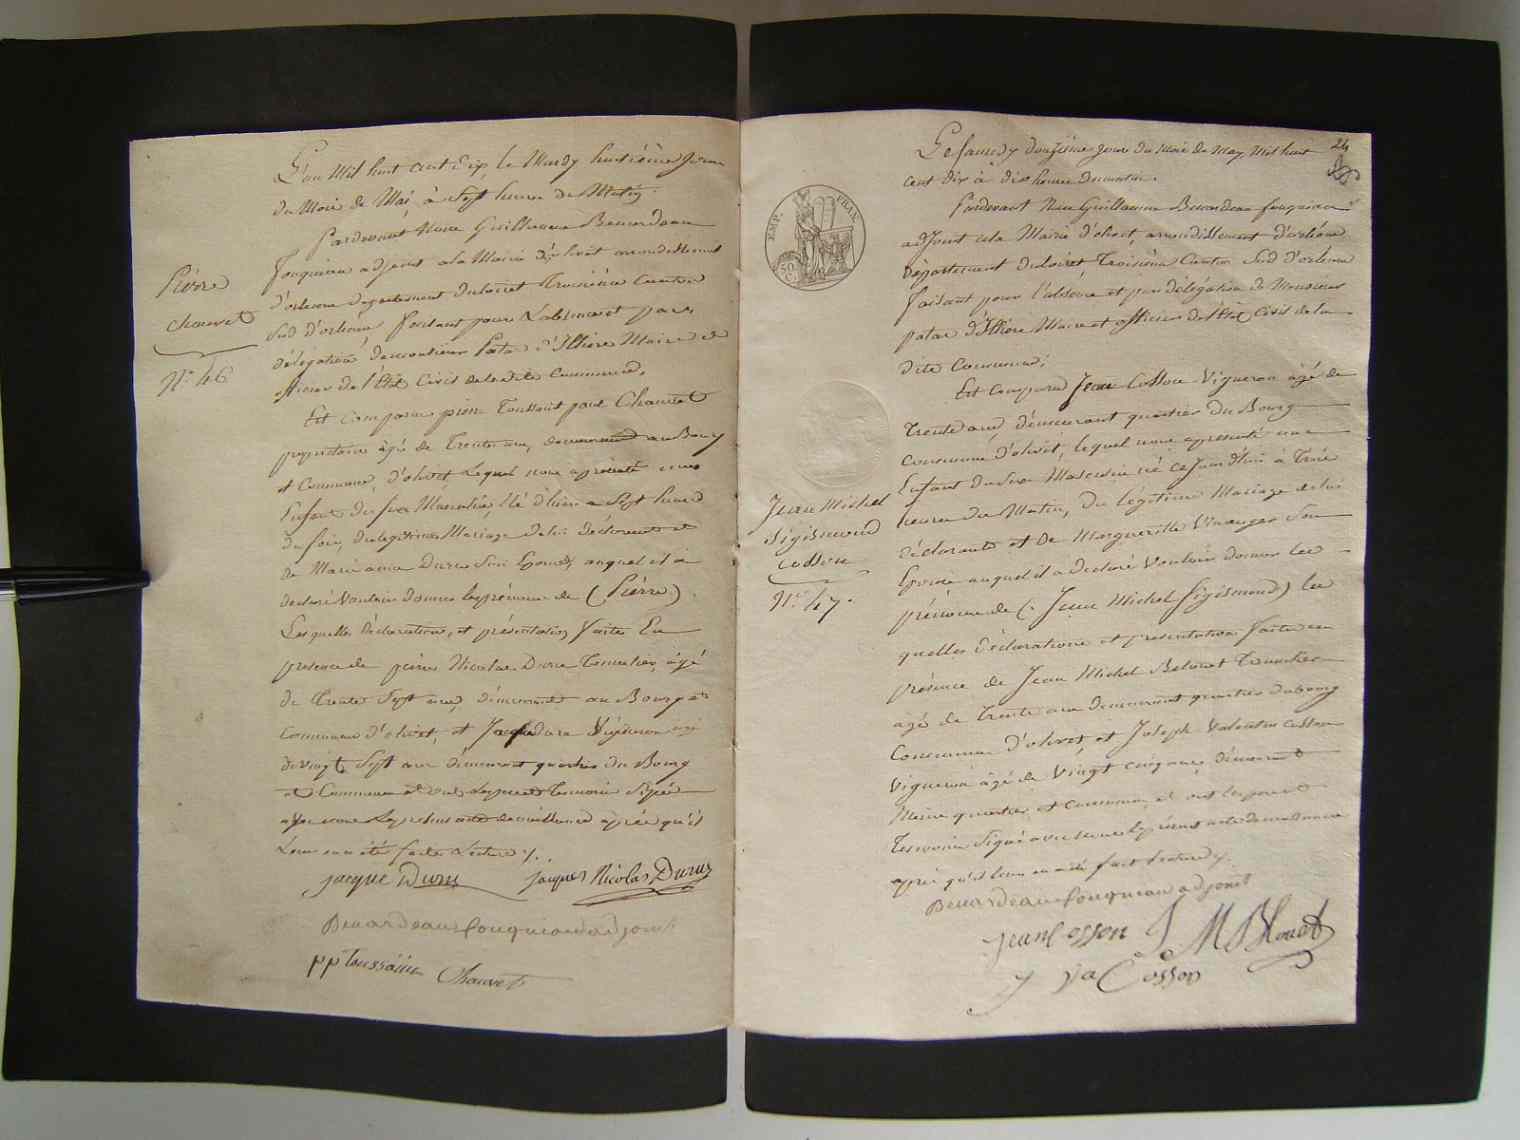 Pierre
Chauvet
N.º 46
L'an Mil huit cent Dix, le Mardy huitième Jour
du Mois de Mai, à Sept heures du Matin.
Pardevant Nous Guillaume Benardeau
Fouqueau adjoint à la Mairie d'olivet arrondissement
d'orléans Département du loiret Troisième Canton
Sud d'orléans, faisant pour L'absence et par
délégation de monsieur Pata d'Illière Maire et
officier de l'État Civil de la dite Commune,
Est Comparu pierre Toussaint paul Chauvet
propriétaire âgé de Trente ans, demeurant au Bourg
et Commune, d'olivet Lequel nous a présenté un
Enfant du sexe Masculin, Né d'hier à Sept heures
du soir, du légitime Mariage de lui Déclarant et
de Marie anne Duru Son Épouse, auquel il a
declaré Vouloir donner les prénoms de (Pierre)
Lesquelles Déclarations, et présentation faites En
présence de Nicolas Duru Tonnelier, âgé
de Trente Sept ans démeurant au Bourg et
Commune d'olivet, et Jacque duru Vigneron âgé
de vingt Sept ans démeurant quartier du Bourg
et Commune et ont Les pere et Temoins Signé
avec nous Le présent acte de naissance après qu'il
Leur en a été fait Lecture ./.
jacque Duru jacques Nicolas Duru
Benardeau fouqueau adjoint
pp Toussaint Chauvet
24
Le samedy douzième jour du Mois de May Mil huit
cent dix à dix heures du matin.
Pardevant Nous Guillaume Benardeau fouqueau
adjoint à la Mairie d'olivet, arrondissement d'orléans
Département du loiret, Troisième Canton Sud d'orléans
faisant pour l'absence et par délégation de Monsieur
patas d'Illière Maire et officier de l'État Civil de la
dite Commune;
EMP. FRAN.
50 C.
Est Comparu Jean Cosson Vigneron âgé de
Trente ans démeurant quartier du Bourg
Commune d'olivet, lequel nous a présenté un
Enfant du Sexe Masculin né Ce Jourd'hui à Trois
heures du Matin, Du légitime Mariage de lui
déclarant et de Marguerite Son
Épouse auquel il a declaré Vouloir donner les
prénoms de (Jean Michel Sigismond) les
quelles Déclarations et présentation faites en
présence de Jean Michel Tonnelier
âgé de Trente ans demeurant quartier du bourg
Commune d'olivet, et Joseph Valentin cosson
Vigneron âgé de Vingt cinq ans, démeurant
Même quartier et commune, et ont les pere et
Temoins Signé avec nous le présent acte de naissance
après qu'il leur en a été fait Lecture ./.
Jean Michel
Sigismond
Cosson
N.º 47.
Benardeau fouqueau adjoint
jean Cosson J M
J va Cosson